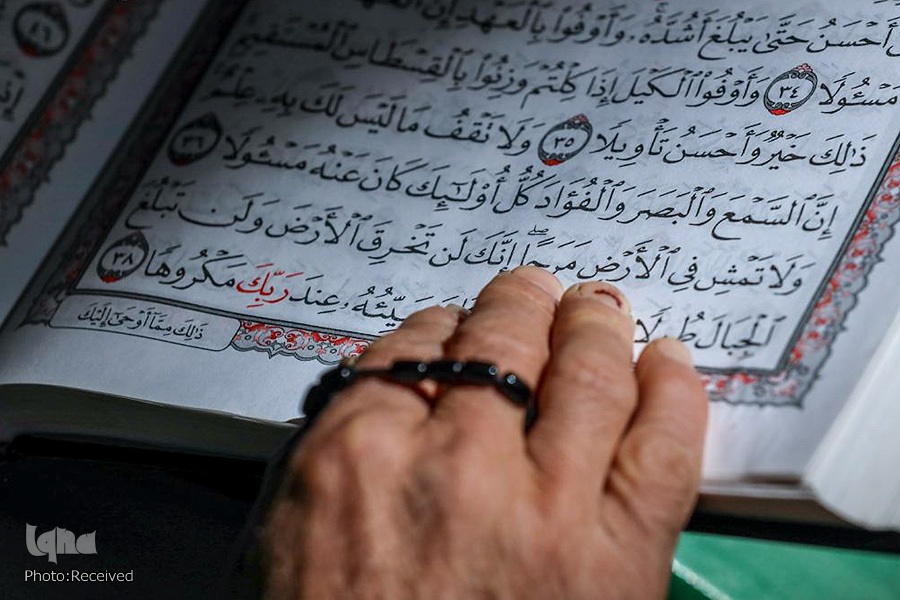 أَحْسَنُ حَتَّىٰ يَبْلُغَ أَشُدَّهُۥ وَأَوْفُوا۟ بِٱلْعَهْدِ إِنَّ ٱلْعَهْدَ
مَسْـُٔولًا ٣٤ وَأَوْفُوا۟ ٱلْكَيْلَ إِذَا كِلْتُمْ وَزِنُوا۟ بِٱلْقِسْطَاسِ ٱلْمُسْتَقِيمِ
ذَٰلِكَ خَيْرٌ وَأَحْسَنُ تَأْوِيلًا ٣٥ وَلَا تَقْفُ مَا لَيْسَ لَكَ بِهِۦ عِلْمٌ
إِنَّ ٱلسَّمْعَ وَٱلْبَصَرَ وَٱلْفُؤَادَ كُلُّ أُو۟لَـٰٓئِكَ كَانَ عَنْهُ مَسْـُٔولًا ٣٦
وَلَا تَمْشِ فِى ٱلْأَرْضِ مَرَحًا إِنَّكَ لَن تَخْرِقَ ٱلْأَرْضَ وَلَن تَبْلُغَ
ٱلْجِبَالَ طُولًا سَيِّئُهُۥ عِندَ رَبِّكَ مَكْرُوهًا ٣٨
ذَٰلِكَ مِمَّآ أَوْحَىٰٓ إِلَيْكَ
iqna
Photo:Received